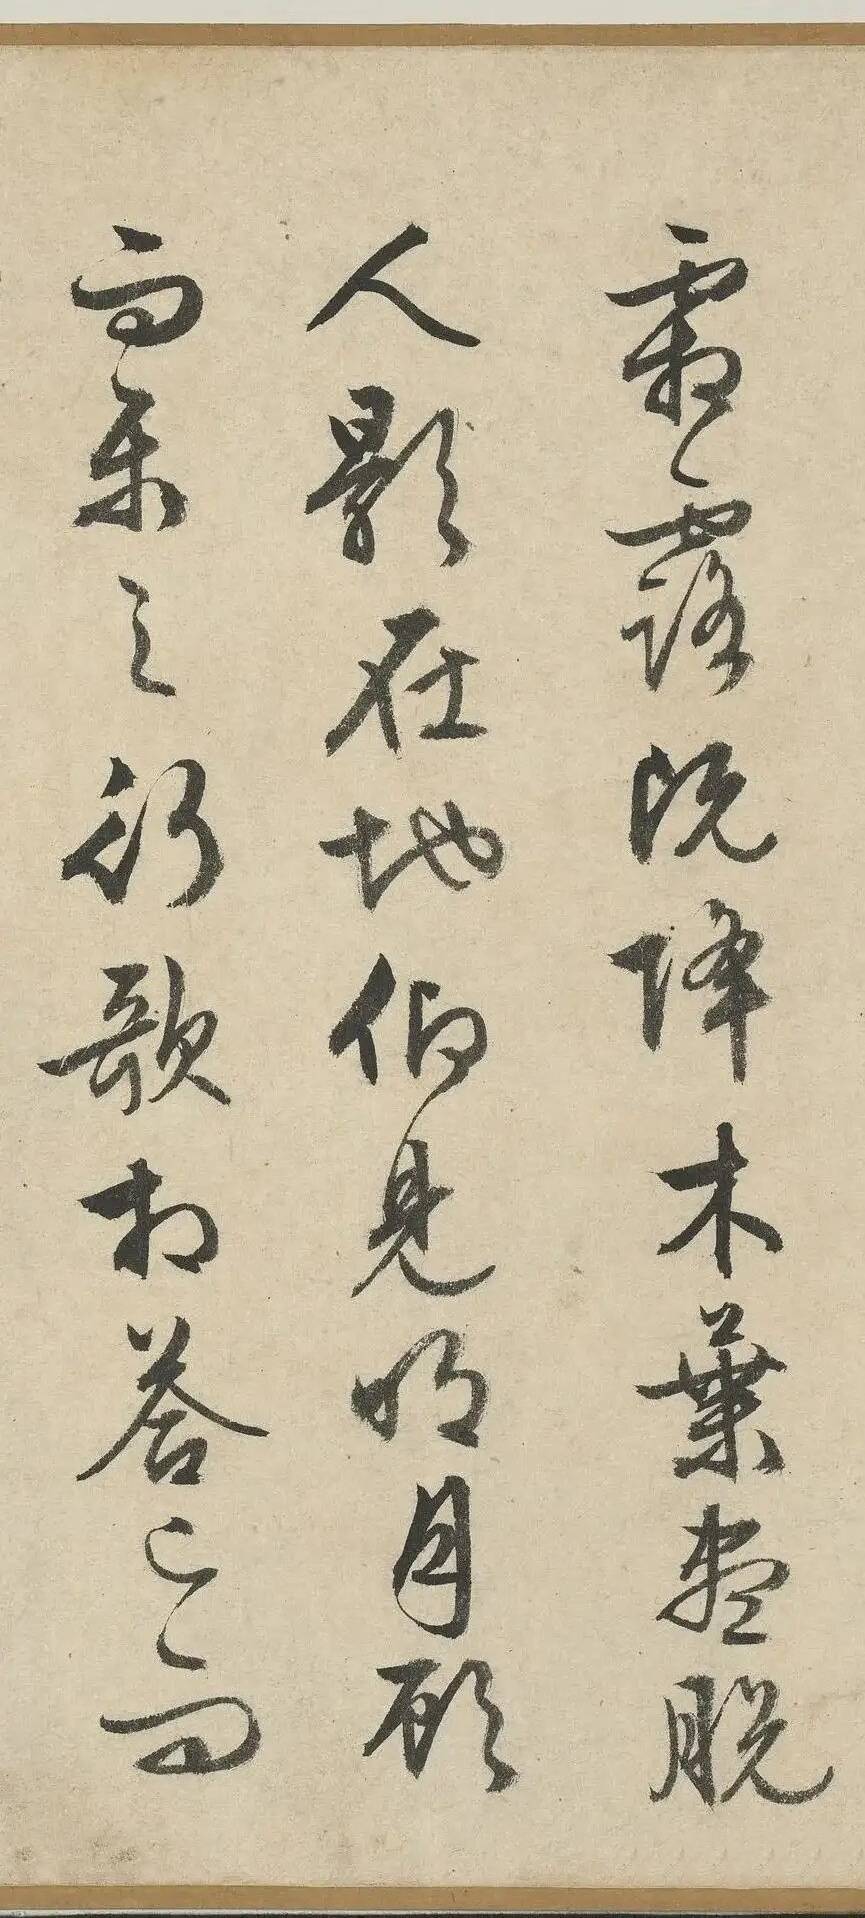 霜露既降木葉盡脫
人影在地仰見明月顧
而樂之行歌相答已而